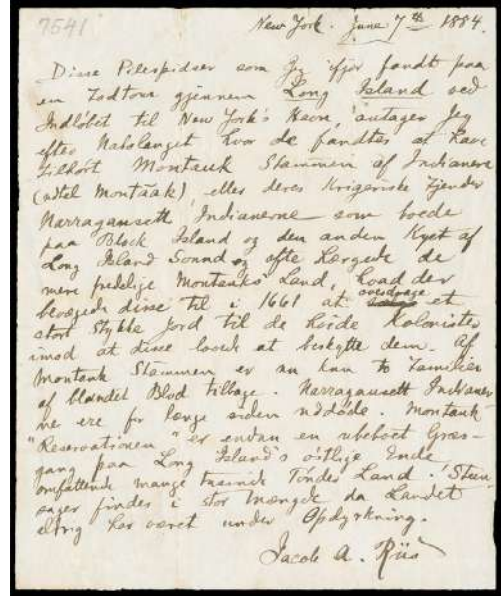 7541
New York. June 7th 1884.
Disse Pilespidser som Jeg ifjor fandt paa
en Fodtour gjennem Long Island ved
Indløbet til New York's Havn, antager Jeg
efter hvor de fandtes at have
tilhørt Montauk Stammen af Indianere
(udtal Montååk), eller deres krigeriske Fjender
Narragansett Indianerne som boede
paa Block Island og den anden Kyst af
Long Island Sound og ofte hærgede de
mere fredelige Montauks' Land, hvad der
bevægede disse til i 1661 at overdrage et
stort Stykke Jord til de hvide Kolonister
imod at disse lovede at beskytte dem. Af
Montauk Stammen er nu kun to Familier
af blandet Blod tilbage. Narragansett Indianer
ne ere for længe siden uddøde. Montauk
"Reservationen" er endnu en ubeboet Græs-
gang paa Long Island's østlige Ende
omfattende mange tusinde Tønder Land. Steen-
sager findes i stor Mængde da Landet
aldrig har været under Opdyrkning.
Jacob A. Riis